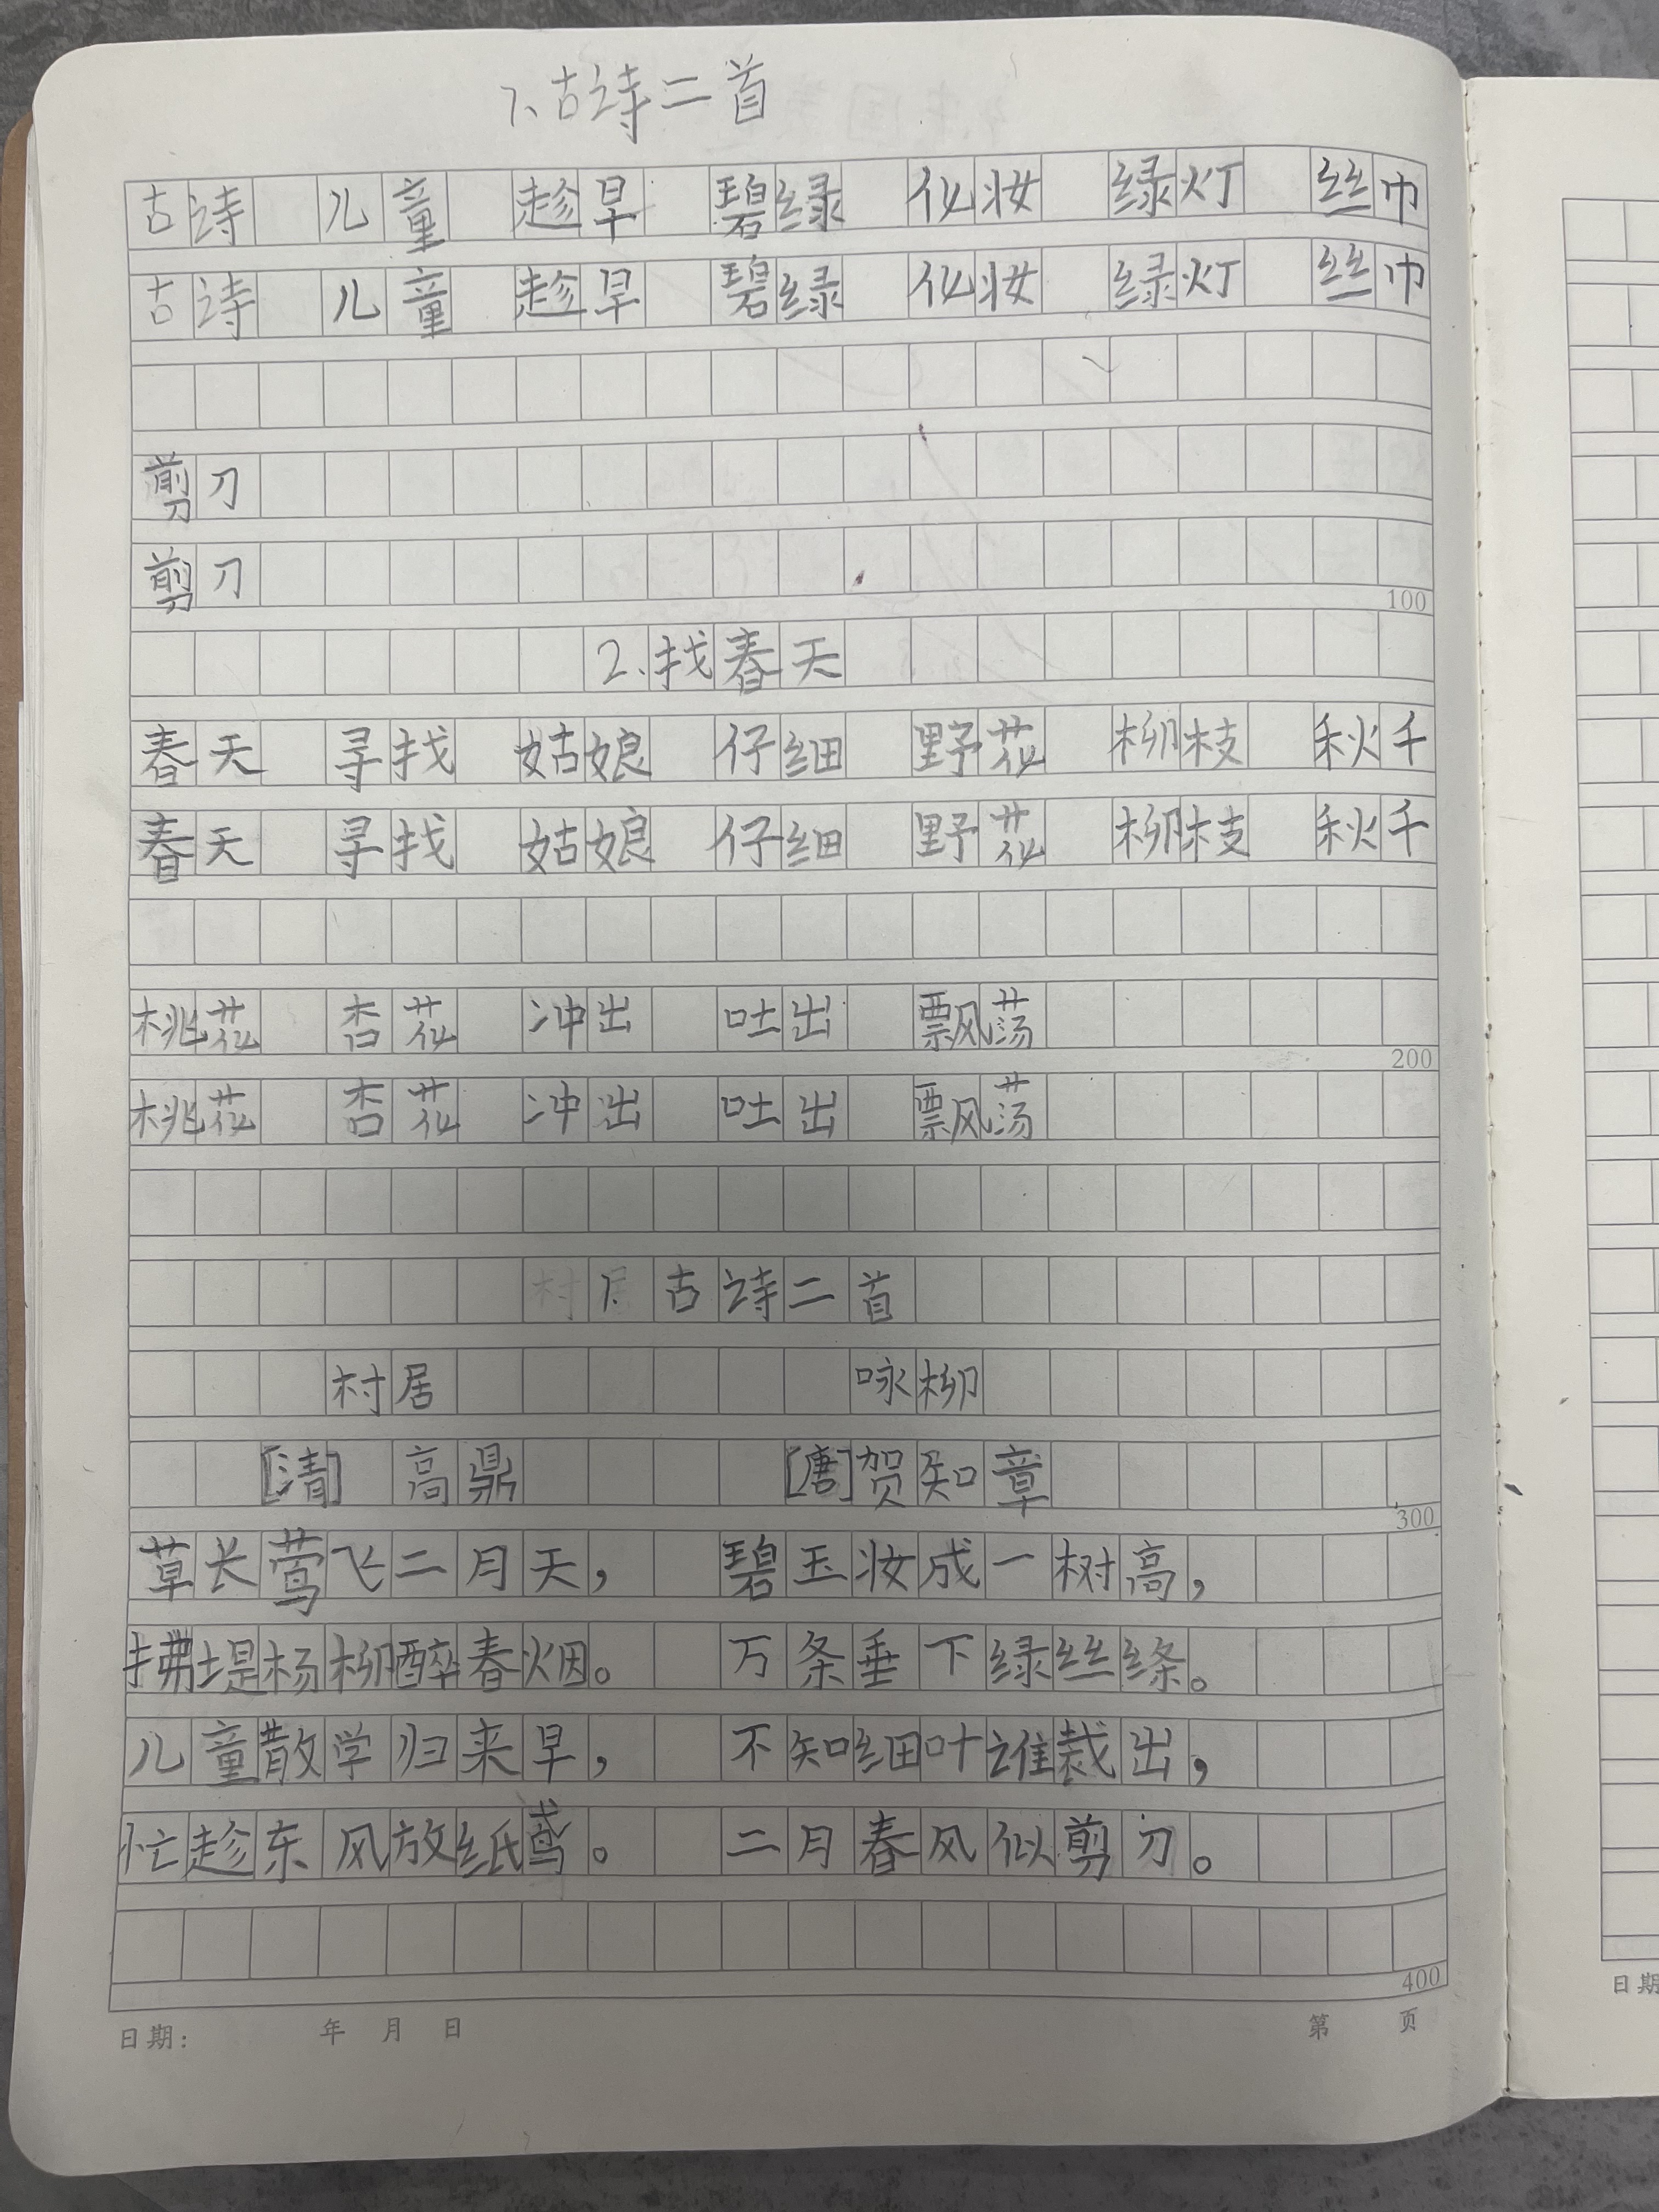 1.古诗二首
古诗 儿童 趁早 碧绿 化妆 绿灯 丝巾
古诗 儿童 趁早 碧绿 化妆 绿灯 丝巾
剪刀
剪刀
100
2.找春天
春天 寻找 姑娘 仔细 野花 柳枝 秋千
春天 寻找 姑娘 仔细 野花 柳枝 秋千
桃花 杏花 冲出 吐出 飘荡
200
桃花 杏花 冲出 吐出 飘荡
1.古诗二首
村居 咏柳
[清] 高鼎 [唐]贺知章
300
草长莺飞二月天, 碧玉妆成一树高,
拂堤杨柳醉春烟。 万条垂下绿丝绦。
儿童散学归来早, 不知细叶谁裁出,
忙趁东风放纸鸢。 二月春风似剪刀。
400
日期: 年 月 日 第 页
日期